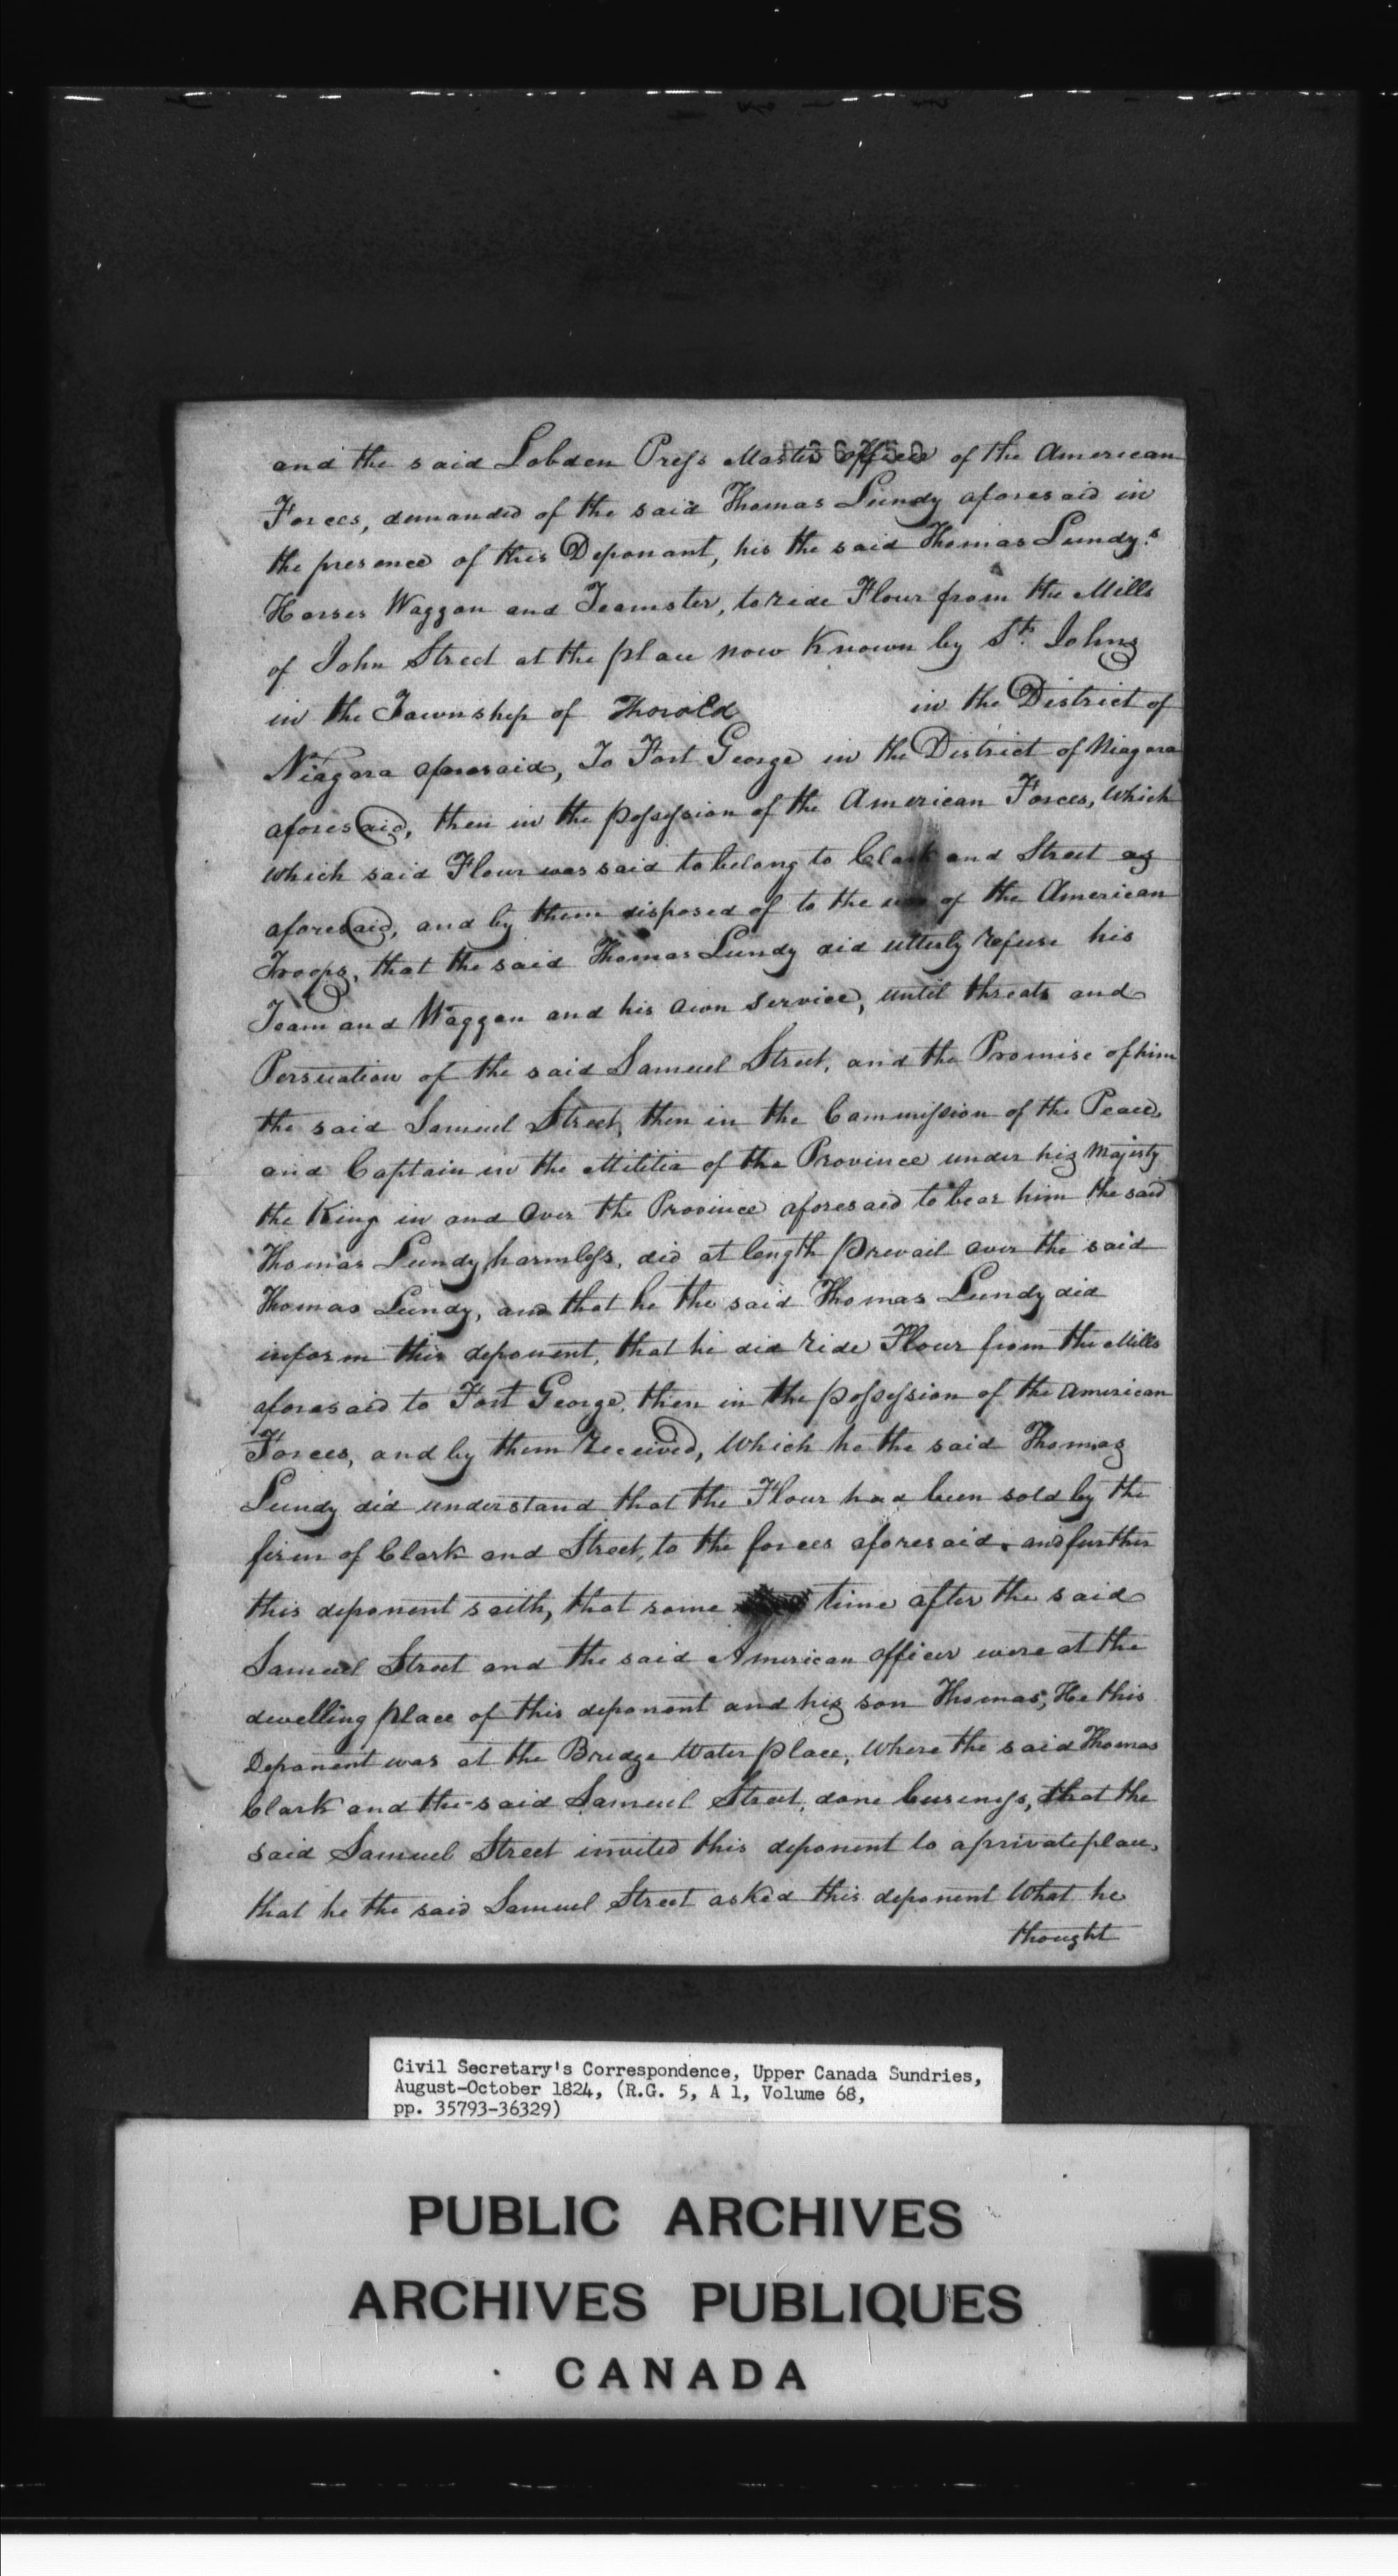 and the said Lobden Press Master officer of the American
Forces, demanded of the said Thomas Lundy aforesaid in
the presence of this Deponant, his the said Thomas Lundy's
Horses Waggon and Teamster, to ride Flour from the Mills
of John Street at the place now Known by St. Johns
in the Township of Thorold in the District of
Niagara aforesaid, To Fort George in the District of Niagara
aforesaid, then in the possession of the American Forces, Which
which said Flour was said to belong to Clark and Street as
aforesaid, and by them disposed of to the use of the American
Troops, that the said Thomas Lundy did utterly refuse his
Team and Waggon and his own service, until threats and
Persuation of the said Samuel Street, and the Promise of him
the said Samuel Street, then in the Commission of the Peace,
and Captain in the Militia of the Province under his Majesty
the King in and over the Province aforesaid to bear him the said
Thomas Lundy, harmless, did at length prevail over the said
Thomas Lundy, and that he the said Thomas Lundy did
inform this deponent, that he did ride Flour from the Mills
aforesaid to Fort George, then in the possession of the American
Forces, and by them Received, Which he the said Thomas
Lundy did understand that the Flour had been sold by the
firm of Clark and Street, to the forces aforesaid. and further
this deponent saith, that some time after the said
Samuel Street and the said American officer were at the
dwelling place of this deponant and his son Thomas, He this
Deponent was at the Bridge Water place, Where the said Thomas
Clark and the said Samuel Street, done business, that the
said Samuel Street invited this deponent to a private place,
that he the said Samuel Street asked this deponent What he
thought
Civil Secretary's Correspondence, Upper Canada Sundries,
August-October 1824, (R.G. 5, A 1, Volume 68,
pp. 35793-36329)
PUBLIC ARCHIVES
ARCHIVES PUBLIQUES
CANADA